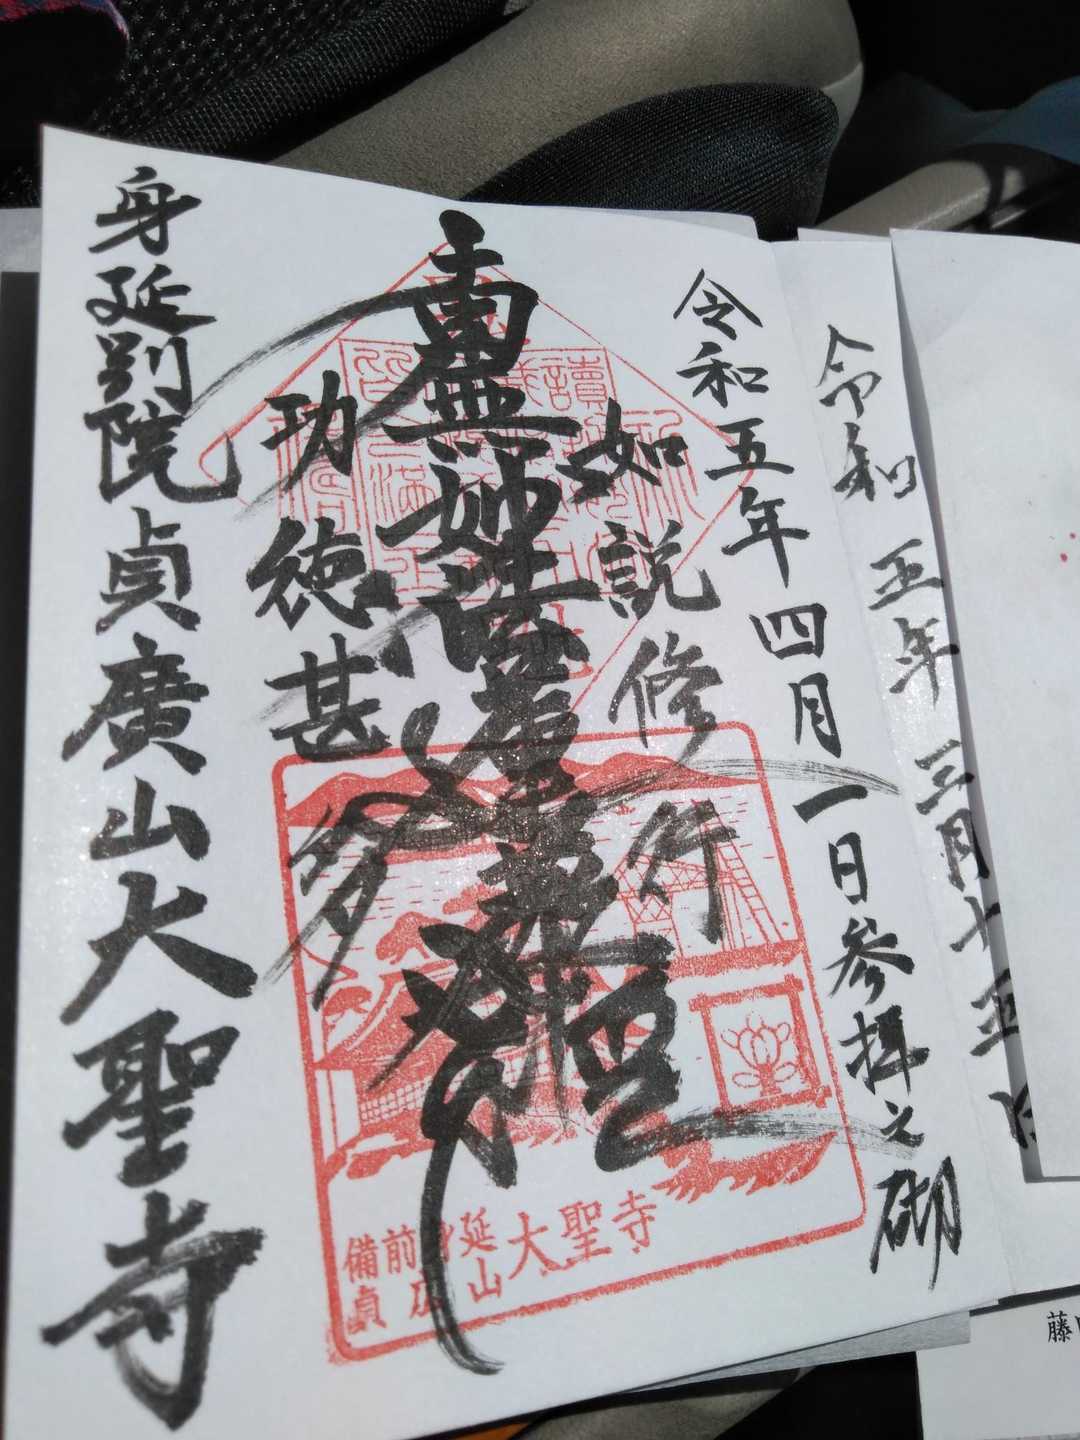 令和五年三月十五日
令和五年四月一日参拝之砌
如説修行
南無妙法蓮華経
功徳甚多
身延別院貞廣山大聖寺
備前身延
貞広山
大聖寺
藤